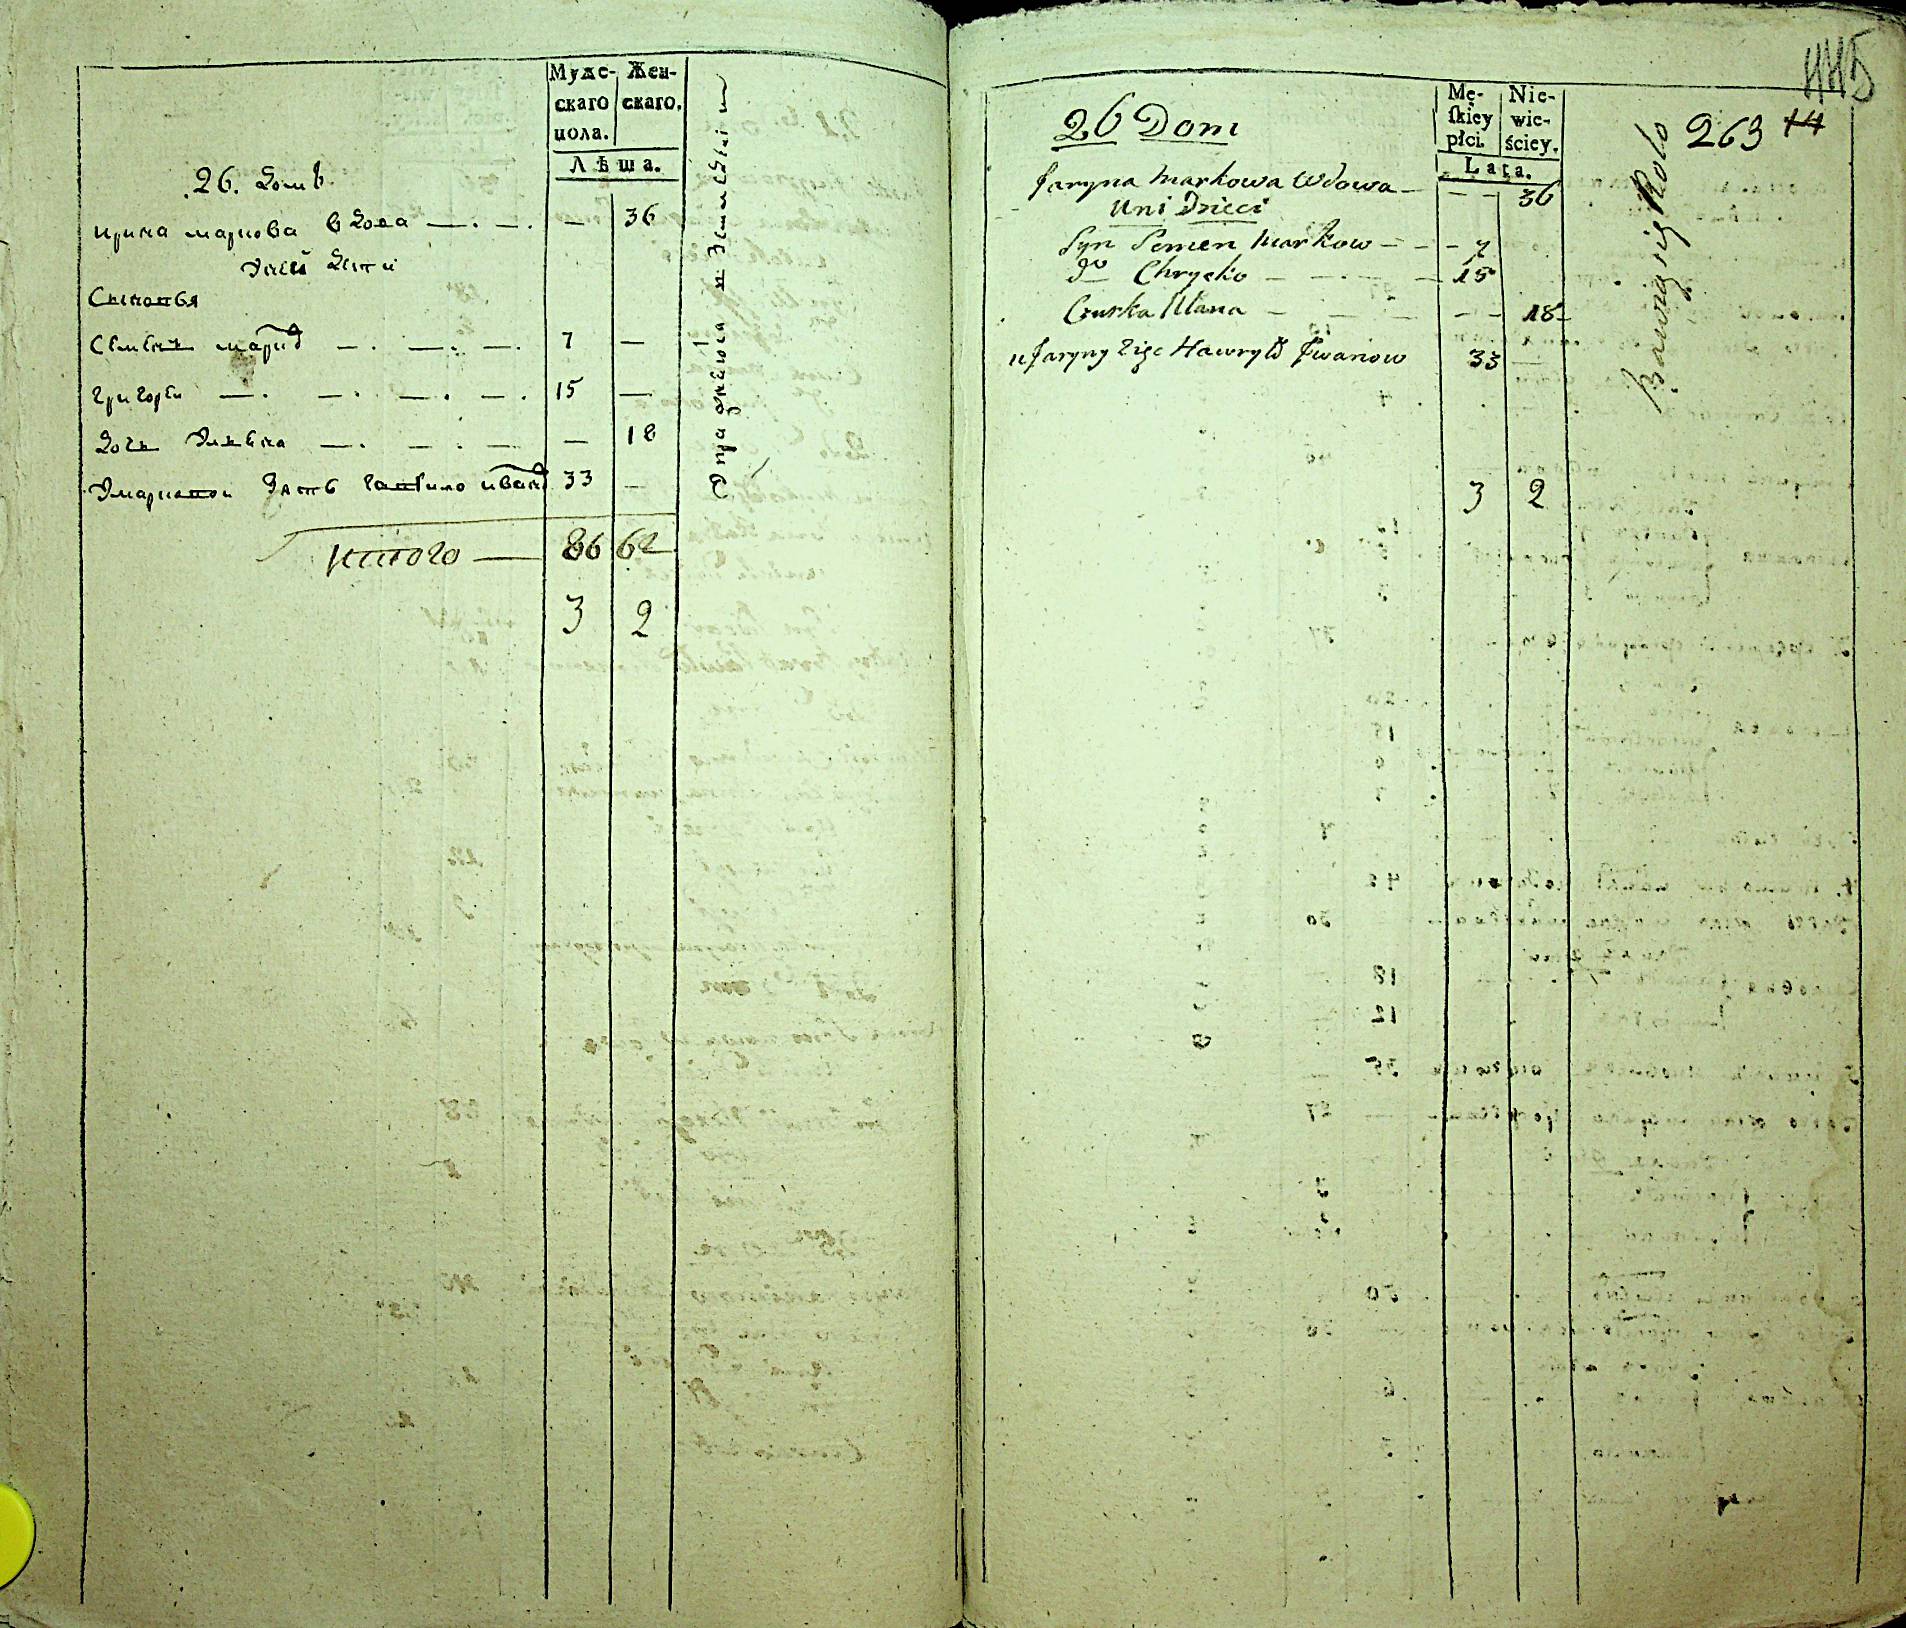 Муже-
скаго
пола.
Жен-
скаго.
Лѣта.
26. домъ
ирина маркова вдова — . — . — 36
дети
Сыновья
Семенъ марко — . — . — . 7 —
григорей — . — . — . — . 15 —
дочь — . — . — . — 18
зять гаврило иванов 33 —
Итого — 86 62
3 2
26 Dom
Mę-
skiey
płci.
Nie-
wie-
ściey.
Lata.
263
Jaryna Markowa Wdowa — — — 36
U ni Dzieci
Syn Semen Markow — — — 7
do Chrycko — — — — 15
Curka Ulana — — — — — 18
u Jaryny Zięc Hawryło Jwanow 33 —
3 2
Bawią się Rolo